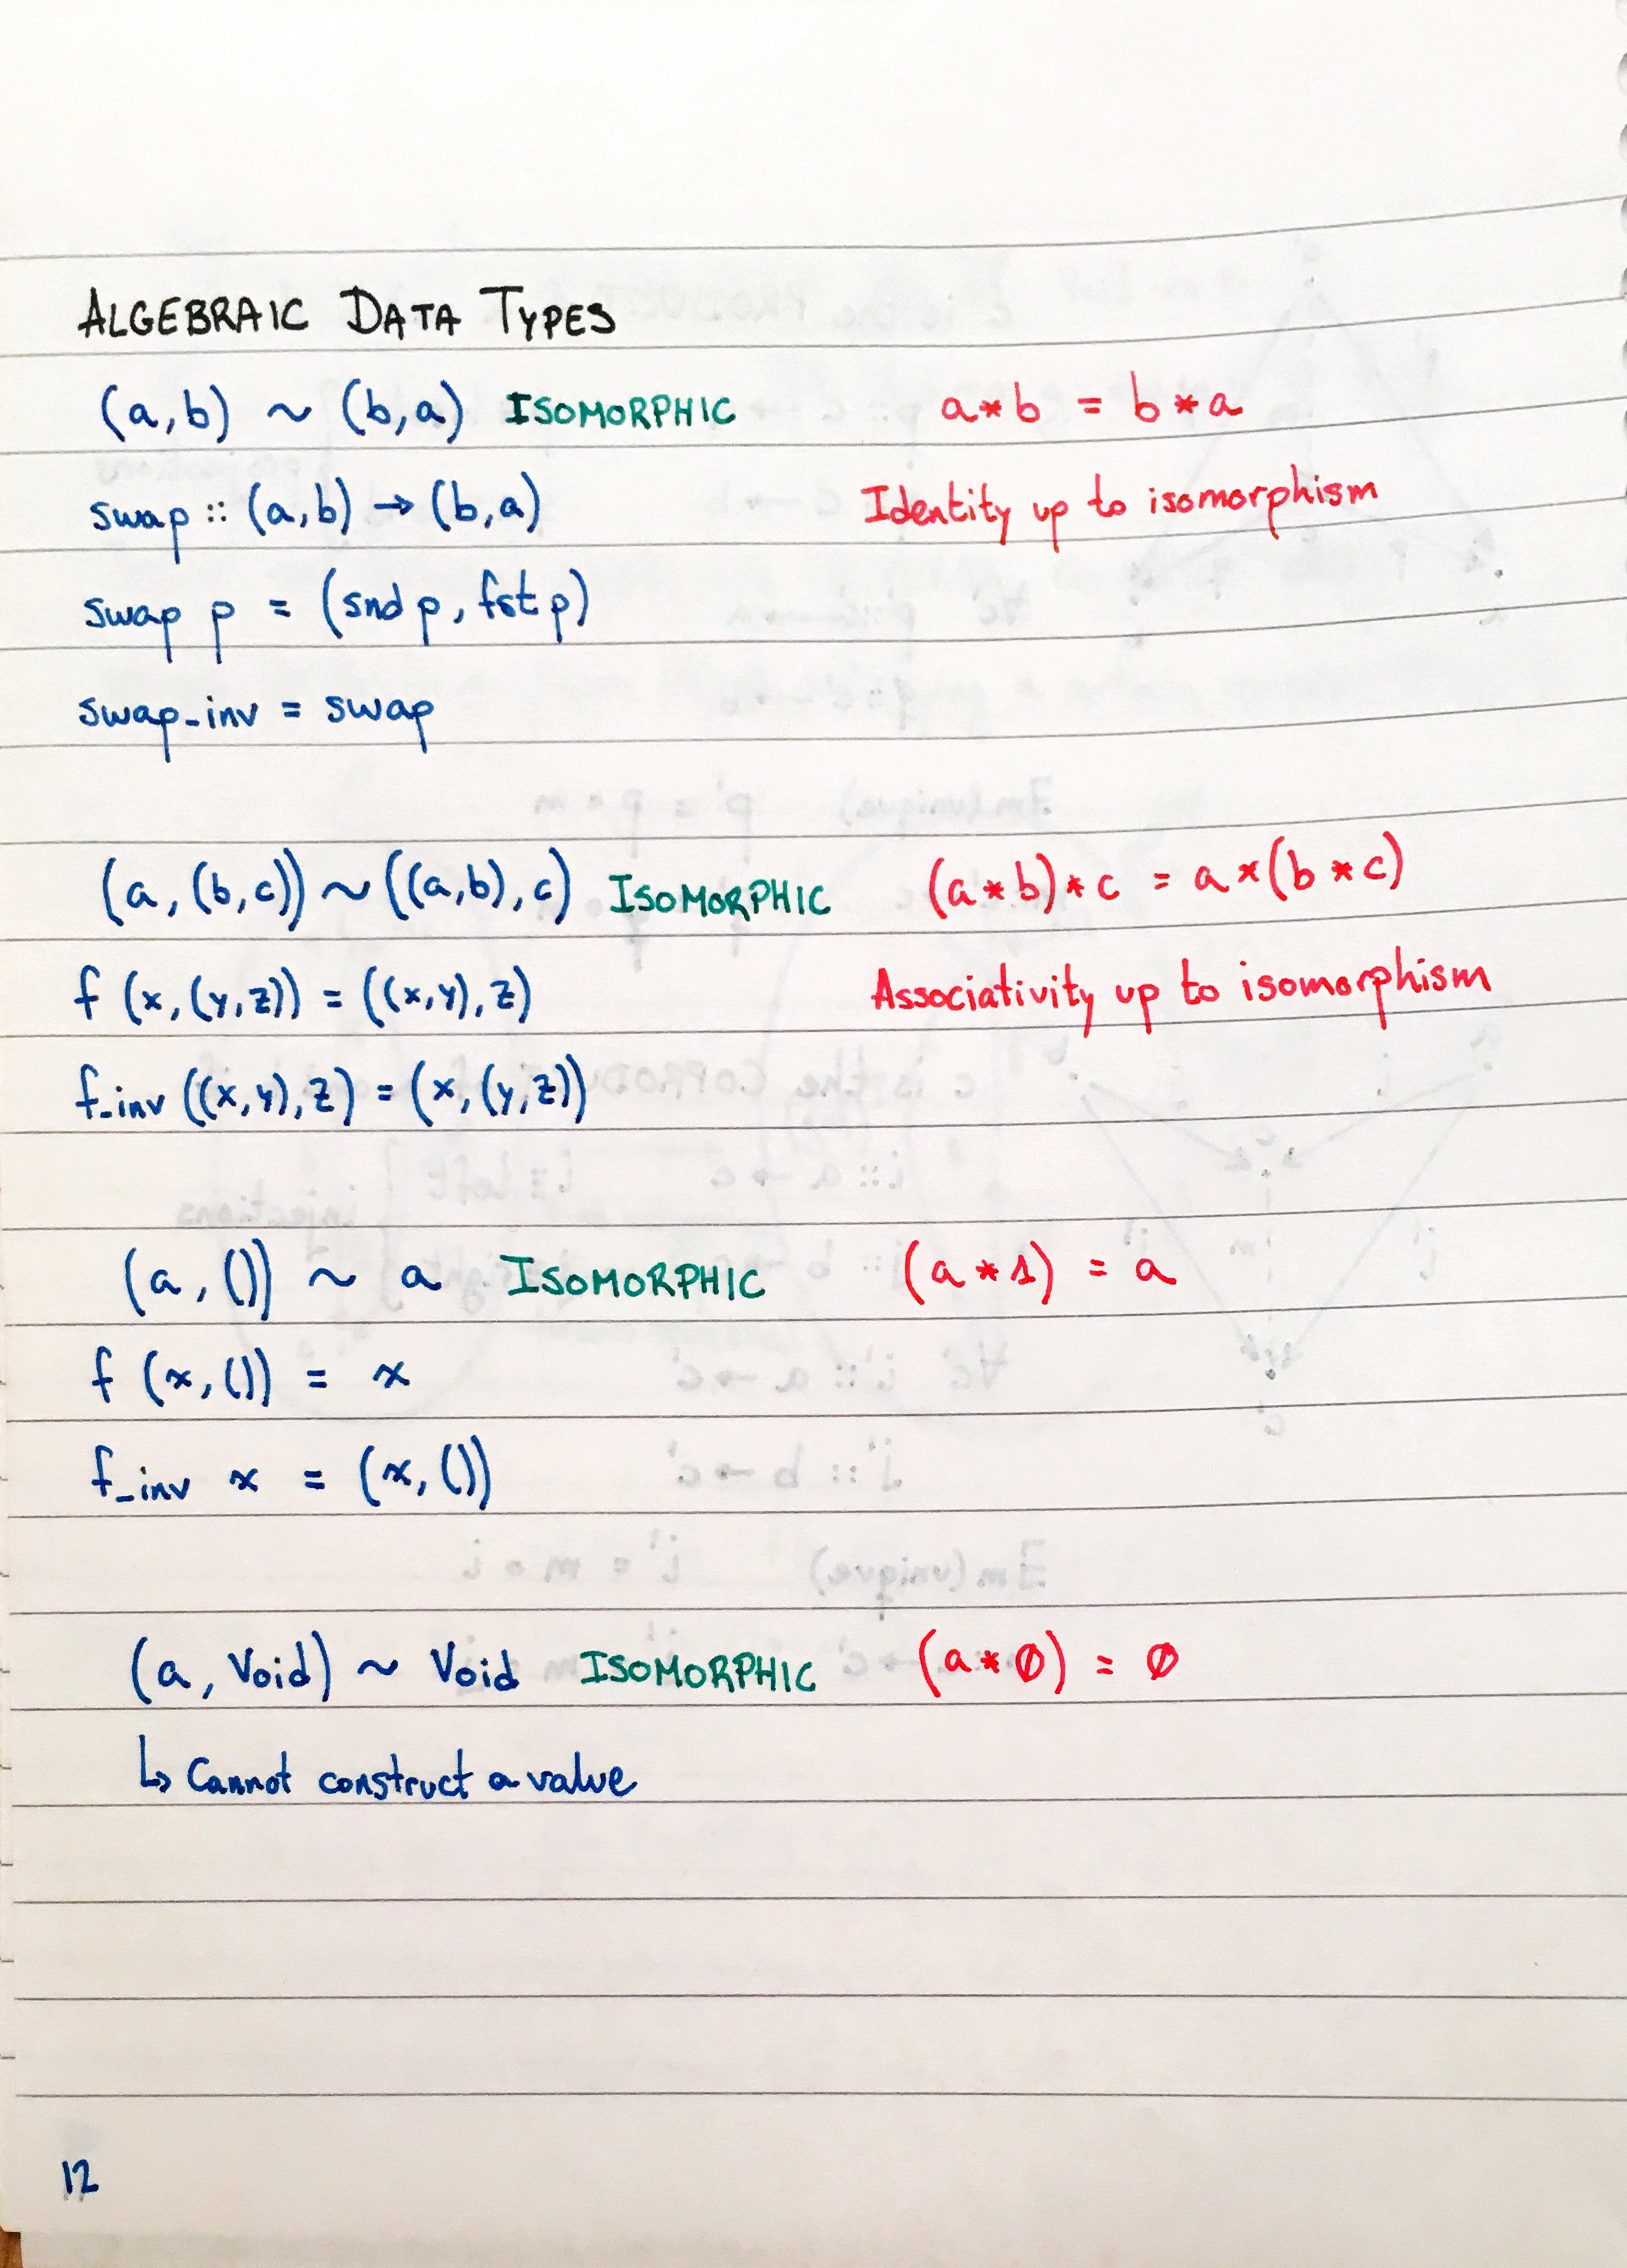 ALGEBRAIC DATA TYPES
(a,b) ~ (b,a) ISOMORPHIC a*b = b*a
swap :: (a,b) → (b,a) Identity up to isomorphism
swap p = (snd p, fst p)
swap_inv = swap
(a, (b,c)) ~ ((a,b), c) ISOMORPHIC (a*b)*c = a*(b*c)
f (x, (y,z)) = ((x,y), z) Associativity up to isomorphism
f_inv ((x,y), z) = (x, (y,z))
(a, ()) ~ a ISOMORPHIC (a*1) = a
f (x, ()) = x
f_inv x = (x, ())
(a, Void) ~ Void ISOMORPHIC (a*0) = 0
↳ Cannot construct a value
12